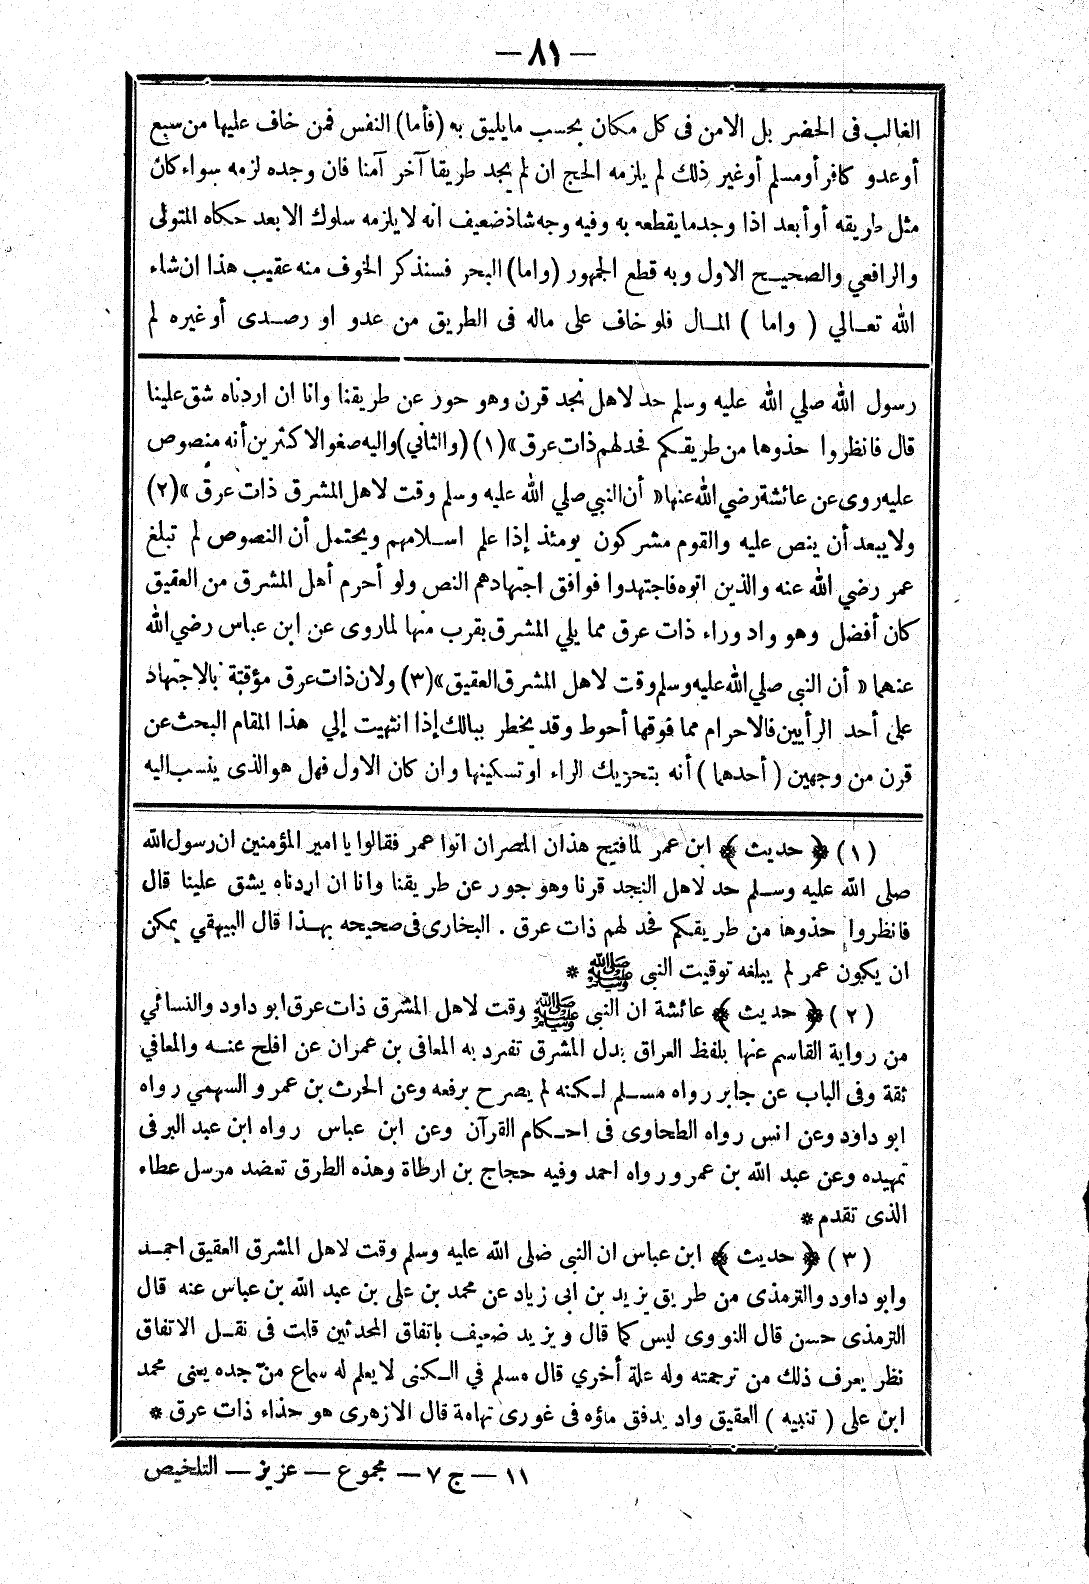 — ٨١ —
الغالب فى الحضر بل الامن فى كل مكان بحسب ما يليق به (فأما) النفس فمن خاف عليها من سبع
أو عدو كافر أو مسلم أو غير ذلك لم يلزمه الحج ان لم يجد طريقا آخر آمنا فان وجده لزمه سواء كان
مثل طريقه أو أبعد اذا وجد ما يقطعه به وفيه وجه شاذ ضعيف انه لا يلزمه سلوك الابعد حكاه المتولى
والرافعي والصحيح الاول وبه قطع الجمهور (واما) البحر فسنذكر الخوف منه عقيب هذا ان شاء
الله تعالي ( واما ) المال فلو خاف على ماله فى الطريق من عدو او رصدى أو غيره لم
رسول الله صلي الله عليه وسلم حد لاهل نجد قرن وهو حور عن طريقنا وانا ان اردناه شق علينا
قال فانظروا حذوها من طريقكم فحد لهم ذات عرق » (١) (والثاني) واليه صغو الاكثرين أنه منصوص
عليه روى عن عائشة رضي الله عنها « أن النبي صلي الله عليه وسلم وقت لاهل المشرق ذات عرق » (٢)
ولا يبعد أن ينص عليه والقوم مشركون يومئذ إذا علم اسلامهم ويحتمل أن النصوص لم تبلغ
عمر رضي الله عنه والذين اتوه فاجتهدوا فوافق اجتهادهم النص ولو أحرم أهل المشرق من العقيق
كان أفضل وهو واد وراء ذات عرق مما يلي المشرق بقرب منها لما روى عن ابن عباس رضي الله
عنهما « أن النبى صلي الله عليه وسلم وقت لاهل المشرق العقيق » (٣) ولان ذات عرق مؤقتة بالاجتهاد
على أحد الرأيين فالاحرام مما فوقها أحوط وقد يخطر ببالك إذا انتهيت إلي هذا المقام البحث عن
قرن من وجهين ( أحدهما ) أنه بتحريك الراء او تسكينها وان كان الاول فهل هو الذى ينسب اليه
(١) ﴿ حديث ﴾ ابن عمر لما فتح هذان المصران اتوا عمر فقالوا يا امير المؤمنين ان رسول الله
صلى الله عليه وسلم حد لاهل النجد قرنا وهو جور عن طريقنا وانا ان اردناه يشق علينا قال
فانظروا حذوها من طريقكم فحد لهم ذات عرق . البخارى فى صحيحه بهذا قال البيهقي يمكن
ان يكون عمر لم يبلغه توقيت النبى ﷺ *
(٢) ﴿ حديث ﴾ عائشة ان النبى ﷺ وقت لاهل المشرق ذات عرق ابو داود والنسائي
من رواية القاسم عنها بلفظ العراق بدل المشرق تفرد به المعافى بن عمران عن افلح عنه والمعافي
ثقة وفى الباب عن جابر رواه مسلم لكنه لم يصرح برفعه وعن الحرث بن عمرو السهمي رواه
ابو داود وعن انس رواه الطحاوى فى احكام القرآن وعن ابن عباس رواه ابن عبد البر فى
تمهيده وعن عبد الله بن عمرو رواه احمد وفيه حجاج بن ارطاة وهذه الطرق تعضد مرسل عطاء
الذى تقدم *
(٣) ﴿ حديث ﴾ ابن عباس ان النبى صلى الله عليه وسلم وقت لاهل المشرق العقيق احمد
وابو داود والترمذى من طريق يزيد بن ابى زياد عن محمد بن على بن عبد الله بن عباس عنه قال
الترمذى حسن قال النووى ليس كما قال ويزيد ضعيف باتفاق المحدثين قلت فى نقل الاتفاق
نظر يعرف ذلك من ترجمته وله علة أخري قال مسلم في الكنى لا يعلم له سماع من جده يعنى محمد
ابن على ( تنبيه ) العقيق واد يدفق ماؤه فى غورى تهامة قال الازهرى هو حذاء ذات عرق *
١١ — ج ٧ — مجموع — عزيز — التلخيص